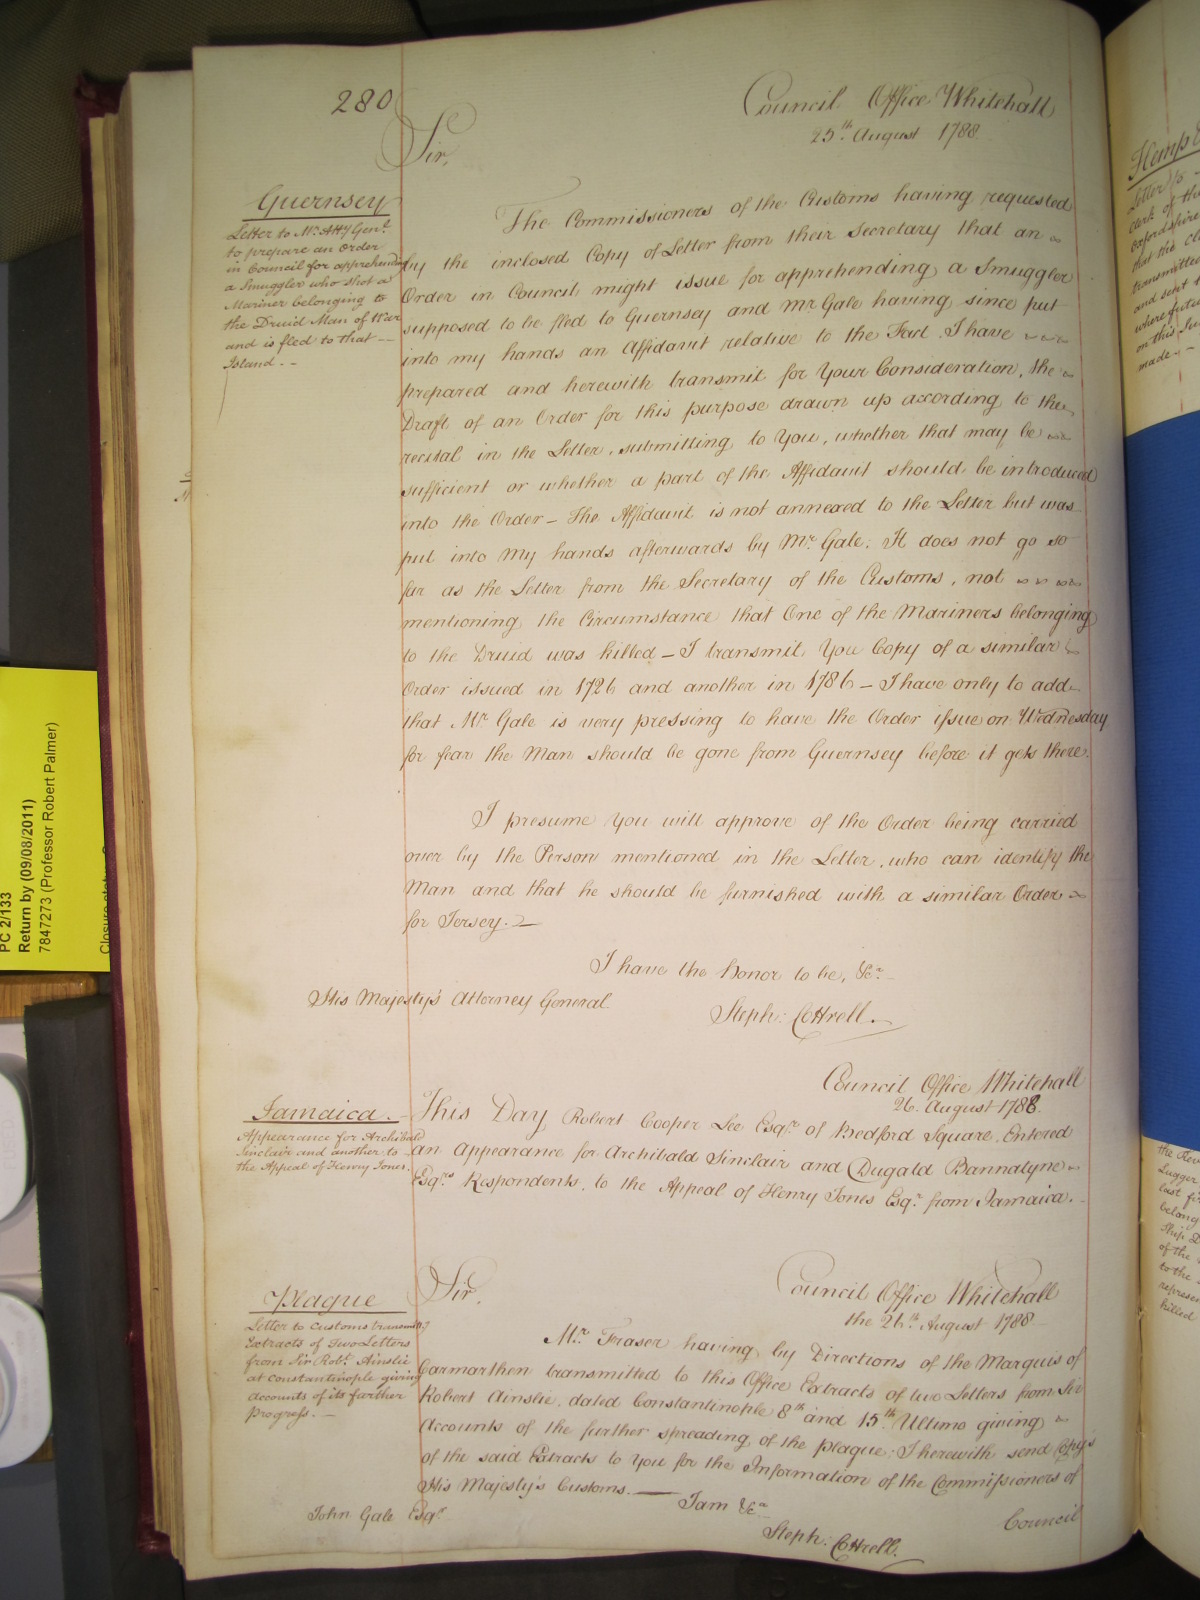 280
Council Office Whitehall
25th August 1788
Sir,
Guernsey
Letter to Mr. Atty Genl.
to prepare an Order
in Council for apprehending
a Smuggler who shot a
Mariner belonging to
the Druid Man of War
and is fled to that
Island. -
The Commissioners of the Customs having requested
by the inclosed Copy of Letter from their Secretary that an
Order in Council might issue for apprehending a Smuggler
supposed to be fled to Guernsey and Mr Gale having since put
into my hands an Affidavit relative to the Fact. I have
prepared and herewith transmit for Your Consideration, the
Draft of an Order for this purpose drawn up according to the
recital in the Letter, submitting to You, whether that may be
sufficient or whether a part of the Affidavit should be introduced
into the Order - The Affidavit is not annexed to the Letter but was
put into my hands afterwards by Mr. Gale. It does not go so
far as the Letter from the Secretary of the Customs, not
mentioning the Circumstance that One of the Mariners belonging
to the Druid was killed - I transmit You Copy of a similar
Order issued in 1726 and another in 1786 - I have only to add
that Mr Gale is very pressing to have the Order issue on Wednesday
for fear the Man should be gone from Guernsey before it gets there.
I presume You will approve of the Order being carried
over by the Person mentioned in the Letter, who can identify the
Man and that he should be furnished with a similar Order
for Jersey. -
I have the honor to be, &c.
His Majesty's Attorney General
Steph: Cottrell.
Council Office Whitehall
26. August 1788.
Jamaica.
Appearance for Archibald
Sinclair and another to
the Appeal of Henry Jones.
This Day Robert Cooper Lee Esqr. of Bedford Square, Entered
an appearance for Archibald Sinclair and Dugald Bannatyne
Esqrs. Respondents, to the Appeal of Henry Jones Esqr. from Jamaica.
Sir,
Council Office Whitehall
the 26th. August 1788
Plague
Letter to Customs transmitg
Extracts of Two Letters
from Sir Robt. Ainslie
at Constantinople giving
accounts of its further
Progress. -
Mr. Fraser having by Directions of the Marquis of
Carmarthen transmitted to this Office Extracts of two Letters from Sir
Robert Ainslie, dated Constantinople 8th and 15th Ultimo giving
Accounts of the further spreading of the plague; I herewith send Copy's
of the said Extracts to You for the Information of the Commissioners of
His Majesty's Customs. - I am &c
John Gale Esqr
Steph: Cottrell.
Council
PC 2/133
Return by (09/08/2011)
7847273 (Professor Robert Palmer)
Letter to
Clerk of the
Oxfordshire
that the
transmitted
and sent
where
on this
made. -
Lugger
last
belong
Ship D
of the
to the
represen
killed